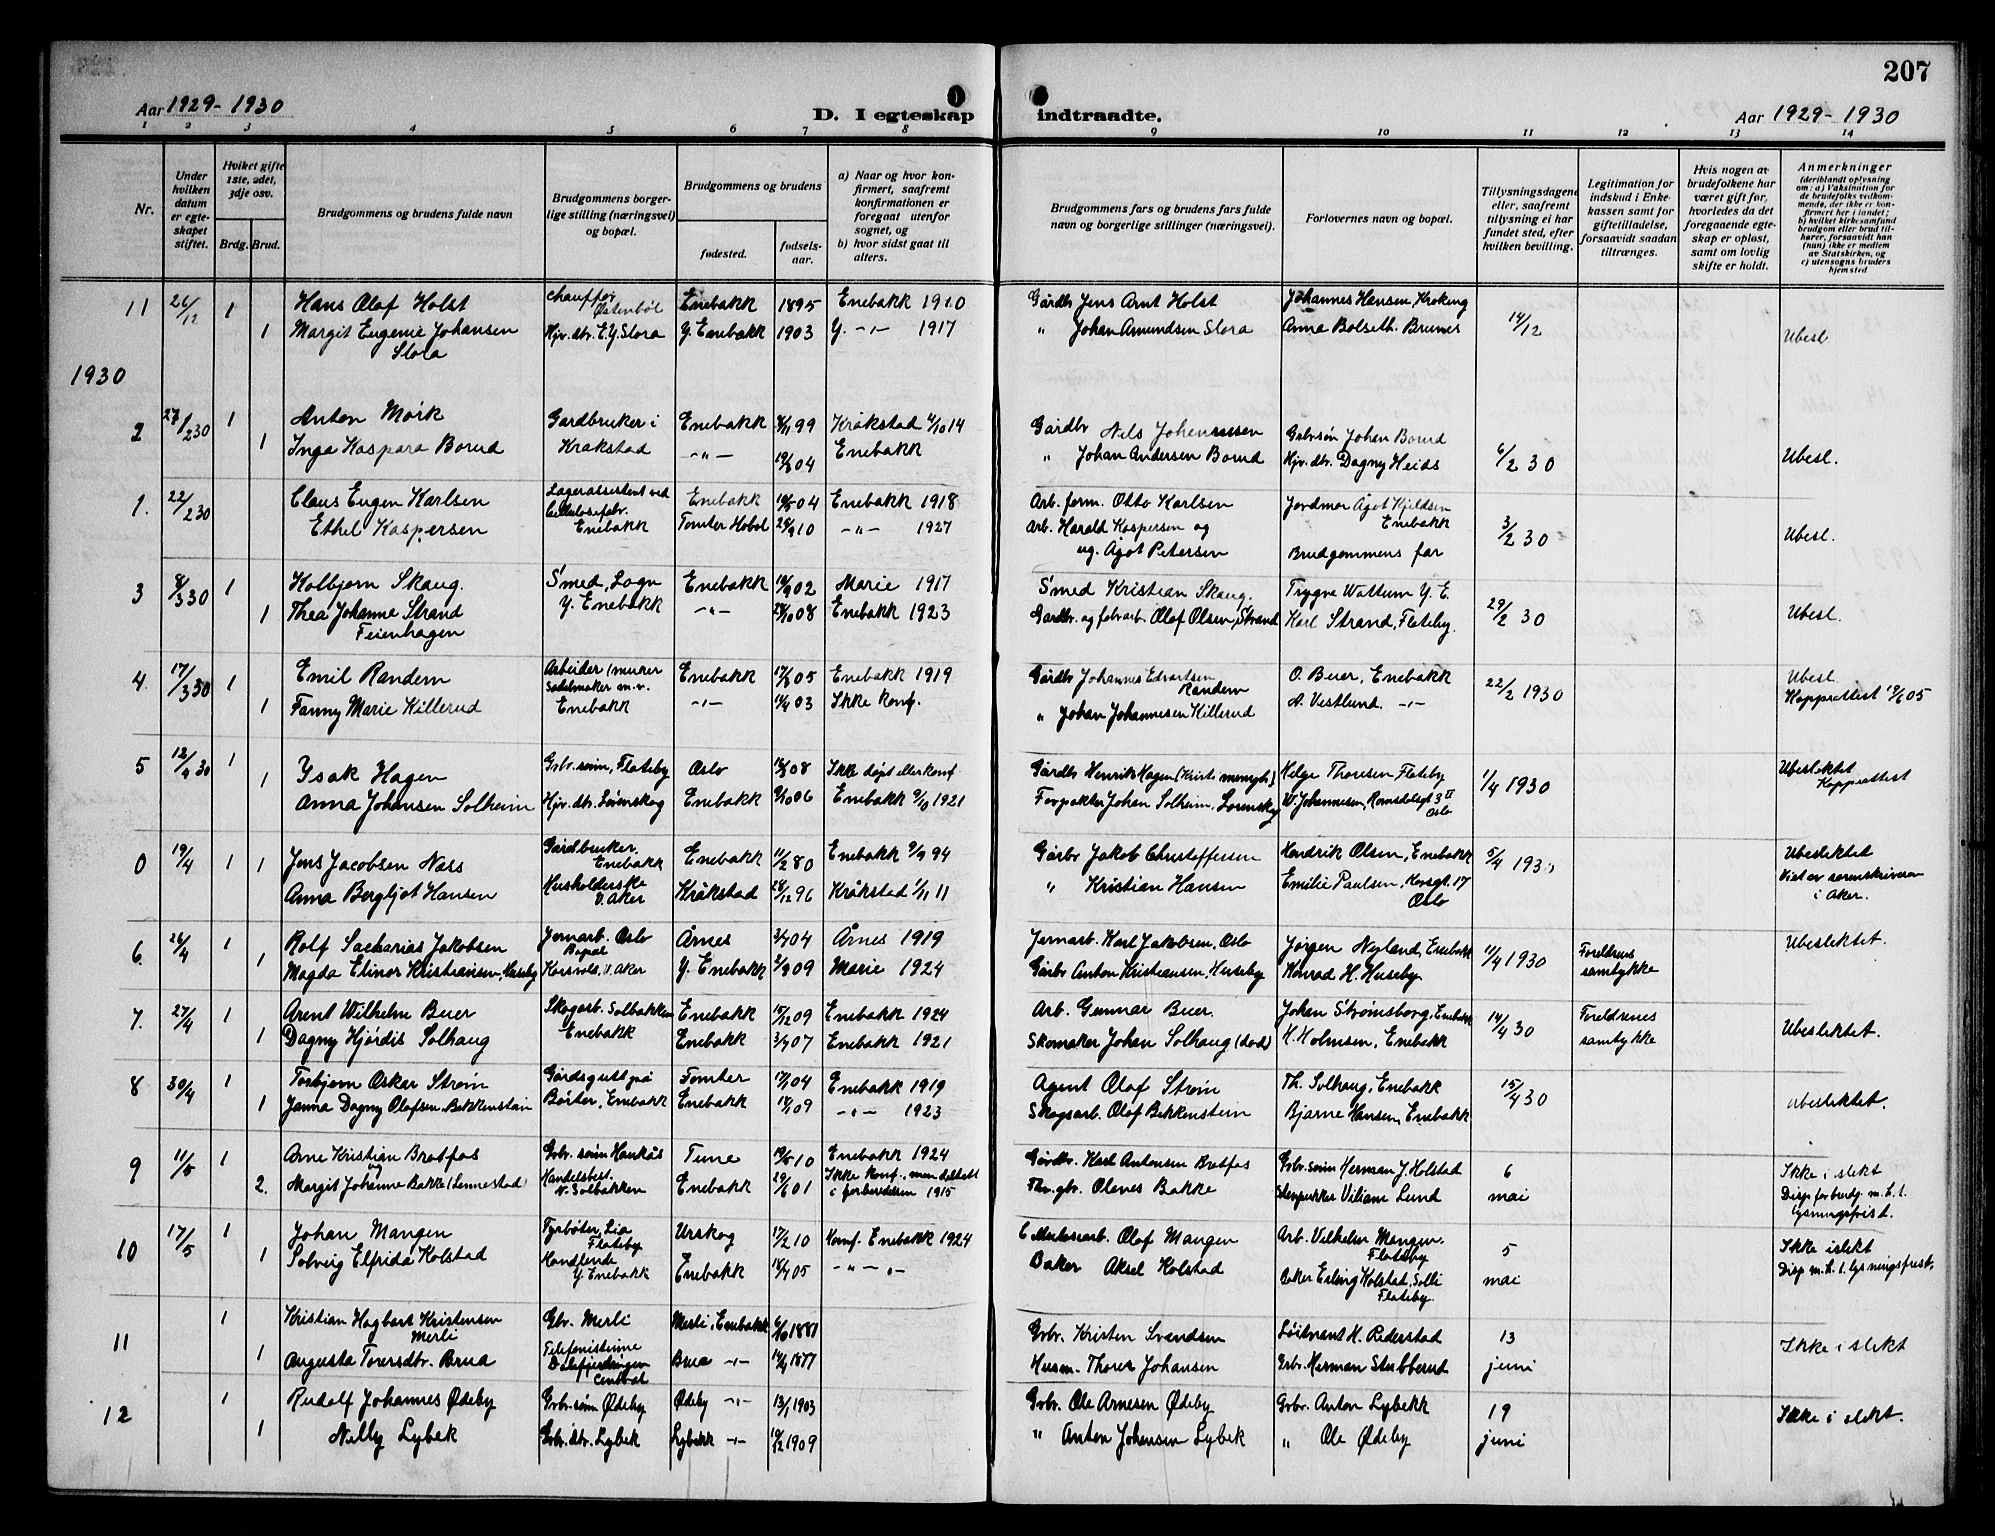 207
Aar 1929-1930
D. I egteskap indtraadte.
Aar 1929-1930
1 2 3 4 5 6 7 8 9 10 11 12 13 14
Nr.
Under hvilken datum er egteskapet stiftet.
Hvilket gifte 1ste, 2det, 3dje osv.
Brdg. Brud.
Brudgommens og brudens fulde navn
Brudgommens borgerlige stilling (næringsvei) og bopæl.
Brudgommens og brudens
fødested. fødselsaar.
a) Naar og hvor konfirmert, saafremt konfirmationen er foregaat utenfor sognet, og
b) hvor sidst gaat til alters.
Brudgommens fars og brudens fars fulde navn og borgerlige stillinger (næringsvei).
Forlovernes navn og bopæl.
Tillysningsdagene eller, saafremt tillysning ei har fundet sted, efter hvilken bevilling.
Legitimation for indskud i Enkekassen samt for giftetilladelse, forsaavidt saadan tiltrænges.
Hvis nogen av brudefolkene har været gift før, hvorledes da det foregaaende egteskap er opløst, samt om lovlig skifte er holdt.
Anmerkninger
(deriblandt oplysning om: a) Vaksination for de brudefolks vedkommende, der ikke er konfirmert her i landet; b) hvilket kirkesamfund brudgom eller brud tilhører, forsaavidt han (hun) ikke er medlem av Statskirken, og c) utensogns bruders hjemsted
11 26/12 1 Hans Olaf Holst Chauffør Østenbøl Enebakk 1895 Enebakk 1910 Gårdbr Jens Arnt Holst Johannes Hansen, Kroking
1 Margit Eugenie Johansen Slora Hjv. dtr. E.Y. Slora Y. Enebakk 1903 Y. -"- 1917 " Johan Amundsen Slora Anna Bolseth. 14/12 Ubesl.
1930
2 27/2 30 1 Anton Mørk Gardbruker i Krakstad Enebakk 99 Kråkstad 4/10 14 Gårdbr Nils Johannessen Grbrsøn Johan Borud
1 Inga Kaspara Borud -"- 04 Enebakk " Johan Andersen Borud Hjv. dtr. Dagny Heids 6/2 30 Ubesl.
1. 22/2 30 Claus Eugen Karlsen Lagerassistent ved Cellulosefabr. Enebakk Enebakk 04 Enebakk 1918 Arb. form. Otto Karlsen Jordmor Agot Kjeldsen Enebakk
Ethel Kaspersen Tomter Hobøl 10 -"- 1927 Arb. Harald Kaspersen og ug. Agot Petersen Brudgommens far 3/2 30 Ubesl.
3 8/3 30 1 Kolbjørn Skaug. Smed, Y. Enebakk Enebakk 02 Marie 1917 Smed Kristian Skaug. Trygve Wattum Y. E.
1 Thea Johanne Strand Feienhagen -"- 08 Enebakk 1923 Gardbr. og fabrarb. Olaf Olsen, Strand Karl Strand, Flateby. 29/2 30 Ubesl.
4. 17/3 30 1 Emil Randem Arbeider (murer sadelmaker m.v. Enebakk Enebakk 05 Enebakk 1919 Gårdbr Johannes Edvartsen Randem O. Buer, Enebakk 22/2 1930 Ubesl.
1 Fanny Marie Killerud -"- 03 Ikke konf. " Johan Johannesen Killerud A. Vestlund. -"- Koppeattest 05
5 12/4 30 1 Isak Hagen Grbr. sønn, Flateby Oslo 08 Ikke døpt eller konf. Gårdbr Henrik Hagen (Krist. menigh.) Helge Thoresen Flateby 1/4 1930 Ubeslektet Koppeattest
1 Anna Johansen Solheim Hjv. dtr. Lørenskog Enebakk 06 Enebakk 9/10 1921 Forpakter Johan Solheim, Lørenskog W. Johannesen, Romsdalsgt 3 II Oslo
0 19/4 1 1 Jens Jacobsen Nass Gårdbruker. Enebakk Enebakk 11/2 80 Enebakk 9/9 94 Gårbr Jakob Christoffersen Hendrik Olsen, Enebakk 5/4 1930 Ubeslektet
Anna Bergljot Hansen Husholderske V. Aker Kråkstad 28/12 96 Kråkstad 1/11 11 " Kristian Hansen Emilie Paulsen, Korsgt. 17 Oslo Viet av sorenskriveren i Aker.
6. 26/4 1 Rolf Sacharias Jakobsen Jernarb. Oslo Bopæl Årnes 3/7 04 Årnes 1919 Jernarb. Karl Jakobsen, Oslo Jørgen Nyland, Enebakk 11/4 1930 Foreldrens samtykke Ubeslektet.
1 Magda Elinor Kristiansen, Huseby Korsvold, V. Aker Y. Enebakk 09 Marie 1924 Gårbr Anton Kristiansen, Huseby Konrad H. Huseby
7. 27/4 1 Arent Wilhelm Buer Skogarb. Solbakken Enebakk Enebakk 15/12 09 Enebakk 1924 Arb. Gunnar Buer. Johan Strømsborg, Enebakk 14/4 30 Foreldrenes samtykke Ubeslektet.
1 Dagny Hjørdis Solhaug Enebakk 3/7 07 Enebakk 1921 Skomaker Johan Solhaug (død) H. Holmsen, Enebakk
8 30/4 1 Torbjørn Oskar Strøm Gårdsgutt på Børter, Enebakk Tomter 04 Enebakk 1919 Agent Olaf Strøm Th. Solhaug, Enebakk 15/4 30 Ubeslektet.
1 Janna Dagny Olafsen. Bekkenstein Enebakk 09 -"- 1923 Skogsarb. Olaf Bekkenstein Bjarne Hansen, Enebakk
9 11/5 1 Arne Kristian Bråtfos Grbr. sønn Haukås Tune 10 Enebakk 1924 Gårdbr. Karl Antonsen Bråtfos Grbr. sønn Herman J. Holstad 6 mai Ikke i slekt
2. og Margit Johanne Bakke (Lennestad) Handelsbest. N. Solbakken Enebakk 29/6 01 Ikke konf., men deltatt i forberedelsen 1915 Olaves Bakke Viliam Lund Disp. for brudg. m.h.t. lysningsfrist.
10 17/5 1 Johan Mangen Fyrbøter, Lia Flateby Urskog 17/2 10 Konf. Enebakk 1924 Cellulosearb. Olaf Mangen Arb. Vilhelm Mangen. Flateby 5 mai Ikke i slekt
1 Solveig Elfrida Kolstad Handlende Y. Enebakk Enebakk 05 -"- -"- Baker Aksel Kolstad Baker Erling Kolstad, Solli Flateby. Disp m.h.t. lysningsfrist.
11 1 Kristian Hagbart Kristensen Merli Gbr. Merli Merli, Enebakk 1881 Grbr. Kristen Svendsen Løitnant H. Rederstad 13 juni Ikke i slekt
1 Augusta Toversdtr. Brua Telefonistinne Dalefjerdingen Central Brua -"- 1877 Husm. Thorer Johansen Grbr. Herman Stubberud
12 1 Rudolf Johannes Ødeby Grbr. sønn Ødeby Ødeby -"- 13/1 1903 Grbr. Ole Arnesen Ødeby Grbr. Anton Lybekk 19 juni Ikke i slekt.
1 Nelly Lybek Grbr. dtr. Lybek Lybekk -"- 10/12 1909 " Anton Johansen Lybek " Ole Ødeby